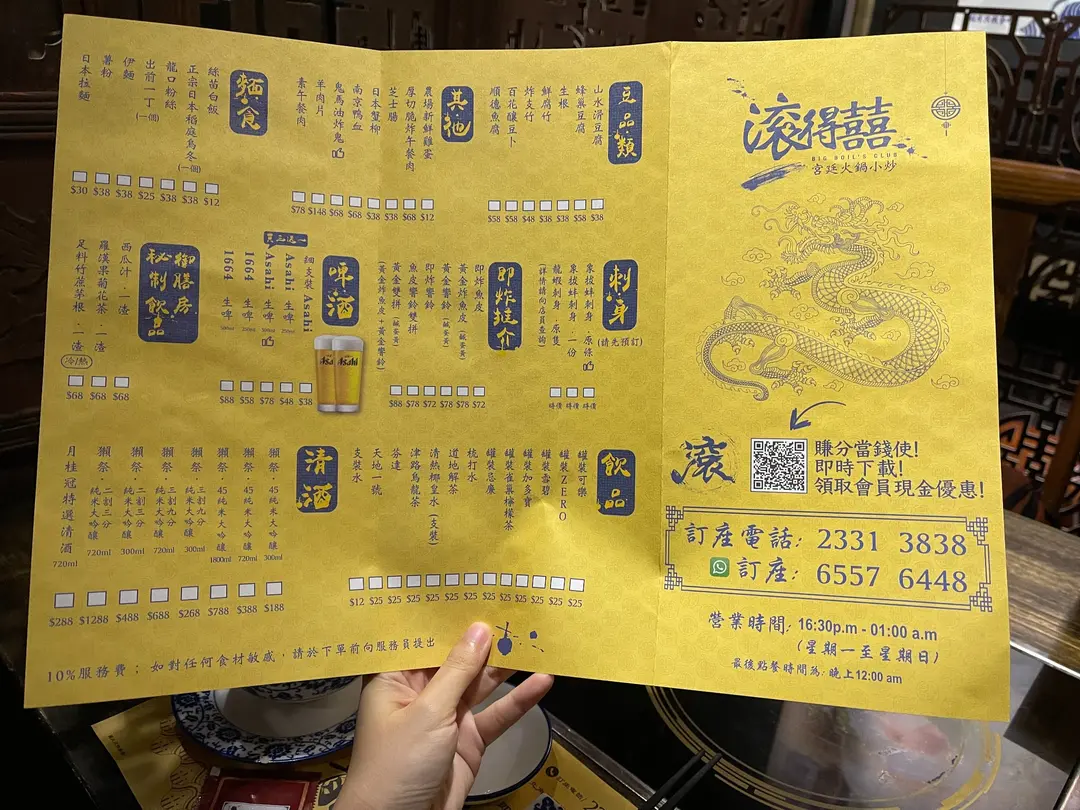 滾得囍
BIG BOIL'S CLUB
宮廷火鍋小炒
滾
賺分當錢使!
即時下載!
領取會員現金優惠!
訂座電話: 2331 3838
訂座: 6557 6448
營業時間: 16:30p.m - 01:00 a.m
(星期一至星期日)
最後點餐時間為: 晚上12:00 am
豆品類
山水滑豆腐
蜂巢豆腐
生根
鮮腐竹
炸支竹
百花釀豆卜
順德魚腐
$58 $58 $48 $38 $38 $58 $38
其他
農場新鮮雞蛋
厚切脆炸午餐肉
芝士腸
日本蟹柳
南京鴨血
鬼馬油炸鬼
羊肉片
素午餐肉
$78 $148 $68 $68 $38 $38 $68 $12
麵食
絲苗白飯
正宗日本稻庭烏冬(一個)
龍口粉絲
出前一丁(一個)
伊麵
薯粉
日本拉麵
$30 $38 $38 $25 $38 $38 $12
刺身
(請先預訂)
象拔蚌刺身．原條
象拔蚌刺身．一份
龍蝦刺身．原隻
(詳情請向店員查詢)
時價 時價 時價
即炸推介
即炸魚皮
黃金炸魚皮(鹹蛋黃)
即炸響鈴
黃金響鈴(鹹蛋黃)
魚皮響鈴雙拼
黃金雙拼(鹹蛋黃)
(黃金炸魚皮+黃金響鈴)
$88 $78 $72 $78 $78 $72
啤酒
細支裝 Asahi
買三送一
Asahi 生啤 250ml
Asahi 生啤 500ml
1664 生啤 250ml
1664 生啤 500ml
Asahi
Asahi
$88 $58 $78 $48 $38
御膳房
秘制飲品
西瓜汁．一渣
羅漢果菊花茶．一渣
足料竹蔗茅根．一渣
冷/熱
$68 $68 $68
飲品
罐裝可樂
罐裝ZERO
罐裝雪碧
罐裝加多寶
罐裝雀巢檸檬茶
罐裝忌廉
梳打水
道地解茶
清熱椰皇水(支裝)
津路烏龍茶
芬達
天地一號
支裝水
$12 $25 $25 $25 $25 $25 $25 $25 $25 $25 $25 $25 $25
清酒
獺祭．45純米大吟釀 300ml
獺祭．45純米大吟釀 720ml
獺祭．45純米大吟釀 1800ml
獺祭．三割九分 純米大吟釀 300ml
獺祭．三割九分 純米大吟釀 720ml
獺祭．二割三分 純米大吟釀 300ml
獺祭．二割三分 純米大吟釀 720ml
月桂冠特選清酒 720ml
$288 $1288 $488 $688 $268 $788 $388 $188
10%服務費；如對任何食材敏感，請於下單前向服務員提出